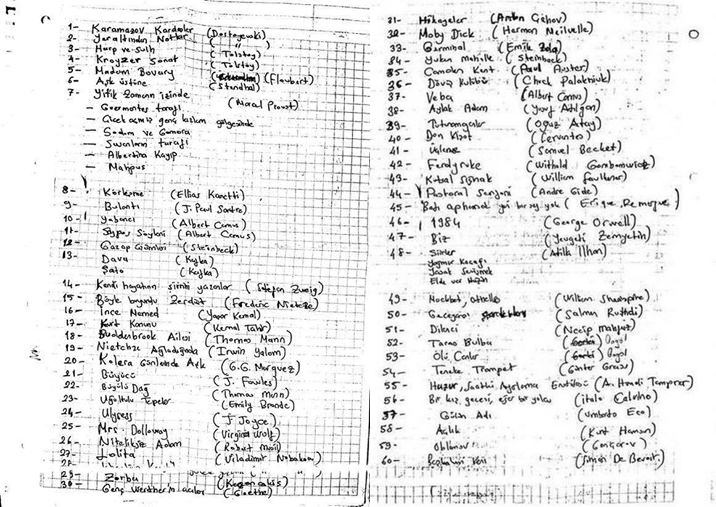 1- Karamazov Kardeşler (Dostoyevski)
2- Yeraltından Notlar ( " )
3- Harp ve Sulh (Tolstoy)
4- Kroyzer Sonat (Tolstoy)
5- Madam Bovary (Flaubert)
6- Aşk üstüne (Stendhal)
7- Yitik Zamanın izinde (Marcel Proust)
— Guermantes tarafı
— Çiçek açmış genç kızların gölgesinde
— Sodom ve Gomora
— Swanların tarafı
— Albertine Kayıp
— Mahpus
8- Körleşme (Elias Kanetti)
9- Bulantı (J. Paul Sartre)
10- Yabancı (Albert Camus)
11- Sisyos Söyleni (Albert Camus)
12- Gazap Üzümleri (Steinbeck)
13- Dava (Kafka)
Şato (Kafka)
14- Kendi hayatının şiirini yazanlar (Stefan Zweig)
15- Böyle buyurdu Zerdüşt (Frederic Nietzche)
16- İnce Memed (Yaşar Kemal)
17- Kurt Kanunu (Kemal Tahir)
18- Buddenbrook Ailesi (Thomas Mann)
19- Nietzche Ağladığında (Irwin Yalom)
20- Kolera Günlerinde Aşk (G.G. Marquez)
21- Büyücü (J. Fowles)
22- Büyülü Dağ (Thomas Mann)
23- Uğultulu Tepeler (Emily Bronde)
24- Ulyses (J Joyce)
25- Mrs. Dalloway (Virginia Wolf)
26- Niteliksiz Adam (Robert Musil)
27- Lolita (Viladimir Nobakov)
28-
29- Zorba (Kazancakis)
30- Genç Werther'in acıları (Goethe)
31- Hikayeler (Anton Çehov)
32- Moby Dick (Herman Melville)
33- Germinal (Emile Zola)
34- Yukarı Mahalle (Steinbeck)
35- Camdan Kent (Paul Auster)
36- Dövüş Kulübü (Chuck Palahniuk)
37- Veba (Albert Camus)
38- Aylak Adam (Yusuf Atılgan)
39- Tutunamayanlar (Oğuz Atay)
40- Don Kişot (Cervantes)
41- Üçleme (Samuel Becket)
42- Ferdydurke (Withold Gombrowicz)
43- Kutsal Sığınak (William Faulkner)
44- Pastoral Senfoni (Andre Gide)
45- Batı cephesinde yeni bir şey yok (Erique Remarque)
46- 1984 (George Orwell)
47- Biz (Yevgeti Zemyetin)
48- Şiirler (Atilla İlhan)
Yağmur Kaçağı
Yasak Sevişmek
Elde var Hüzün
49- Macbet, Othello
50- (Salman Rushdi)
51- Dilenci (Necip Mahfuz)
52- Taras Bulba (Gogol)
53- Ölü Canlar (Gogol)
54- Teneke Trampet (Günter Grass)
55- Huzur, Saatleri Ayarlama Enstitüsü (A. Hamdi Tanpınar)
56- Bir kış gecesi, eğer bir yolcu (italo Calvino)
57- Gülün Adı (Umberto Eco)
58- Açlık (Knut Hamsun)
59- Oblomov (Gonçarov)
60-